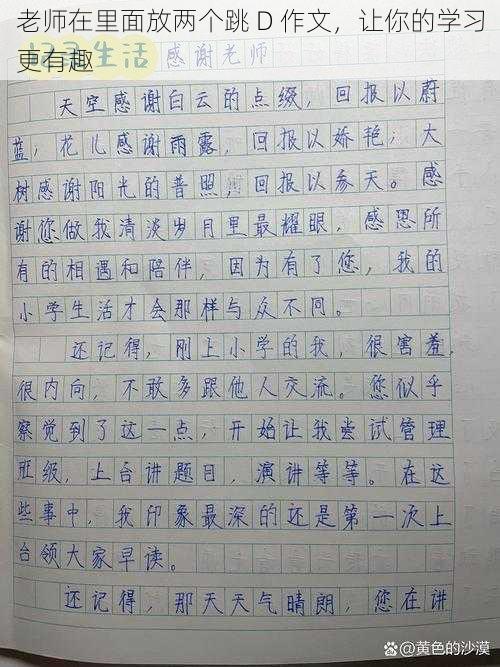 老师在里面放两个跳 D 作文，让你的学习
更有趣
记录生活 感谢老师
天空感谢白云的点缀，回报以蔚
蓝；花儿感谢雨露，回报以娇艳；大
树感谢阳光的普照，回报以参天。感
谢您做我清淡岁月里最耀眼，感恩所
有的相遇和陪伴，因为有了您，我的
小学生活才会那样与众不同。
还记得，刚上小学的我，很害羞，
很内向，不敢多跟他人交流。您似乎
察觉到了这一点，开始让我尝试管理
班级，上台讲题目，演讲等等。在这
些事中，我印象最深的还是第一次上
台领大家早读。
还记得，那天天气晴朗，您在讲
@黄色的沙漠